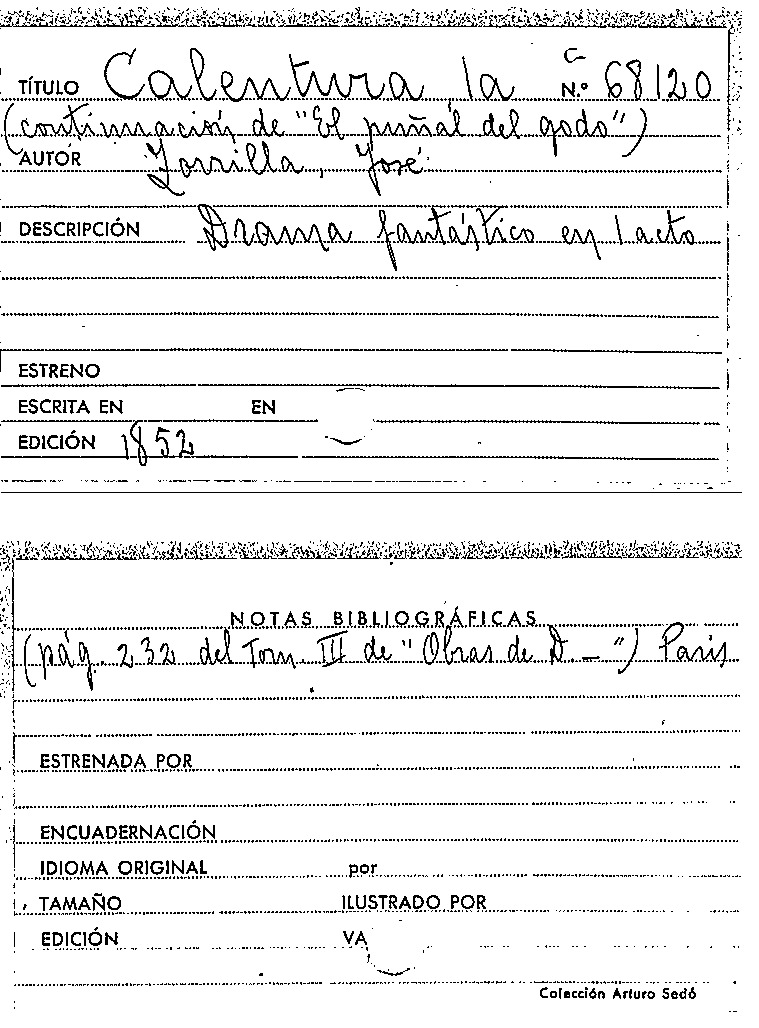 C
TÍTULO Calentura la N.º 68120
(continuación de "El puñal del godo")
AUTOR Zorrilla, José
DESCRIPCIÓN Drama fantástico en 1 acto
ESTRENO
ESCRITA EN EN
EDICIÓN 1852
NOTAS BIBLIOGRÁFICAS
(pág. 232 del Tom. III de "Obras de D. —") Paris
ESTRENADA POR
ENCUADERNACIÓN
IDIOMA ORIGINAL por
TAMAÑO ILUSTRADO POR
EDICIÓN VA
Colección Arturo Sedó